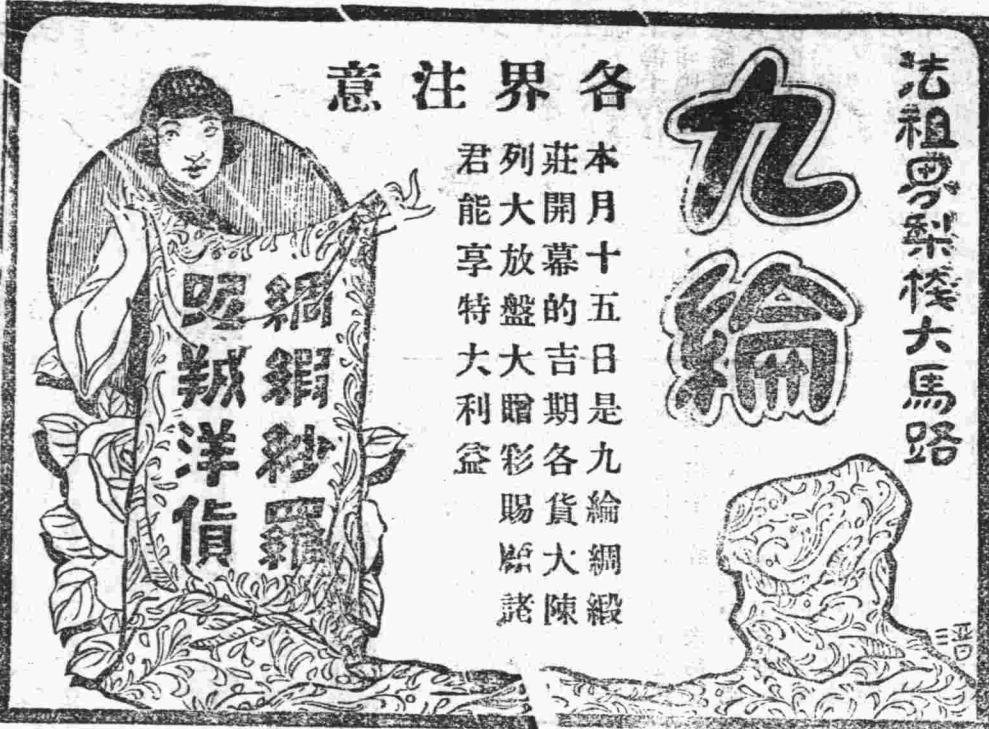 法租界梨棧大馬路
九綸
各界注意
本月十五日是九綸綢緞
莊開幕的吉期各貨大陳
列大放盤大贈彩賜顧諸
君能享特大利益
綢緞紗羅
呢絨洋貨